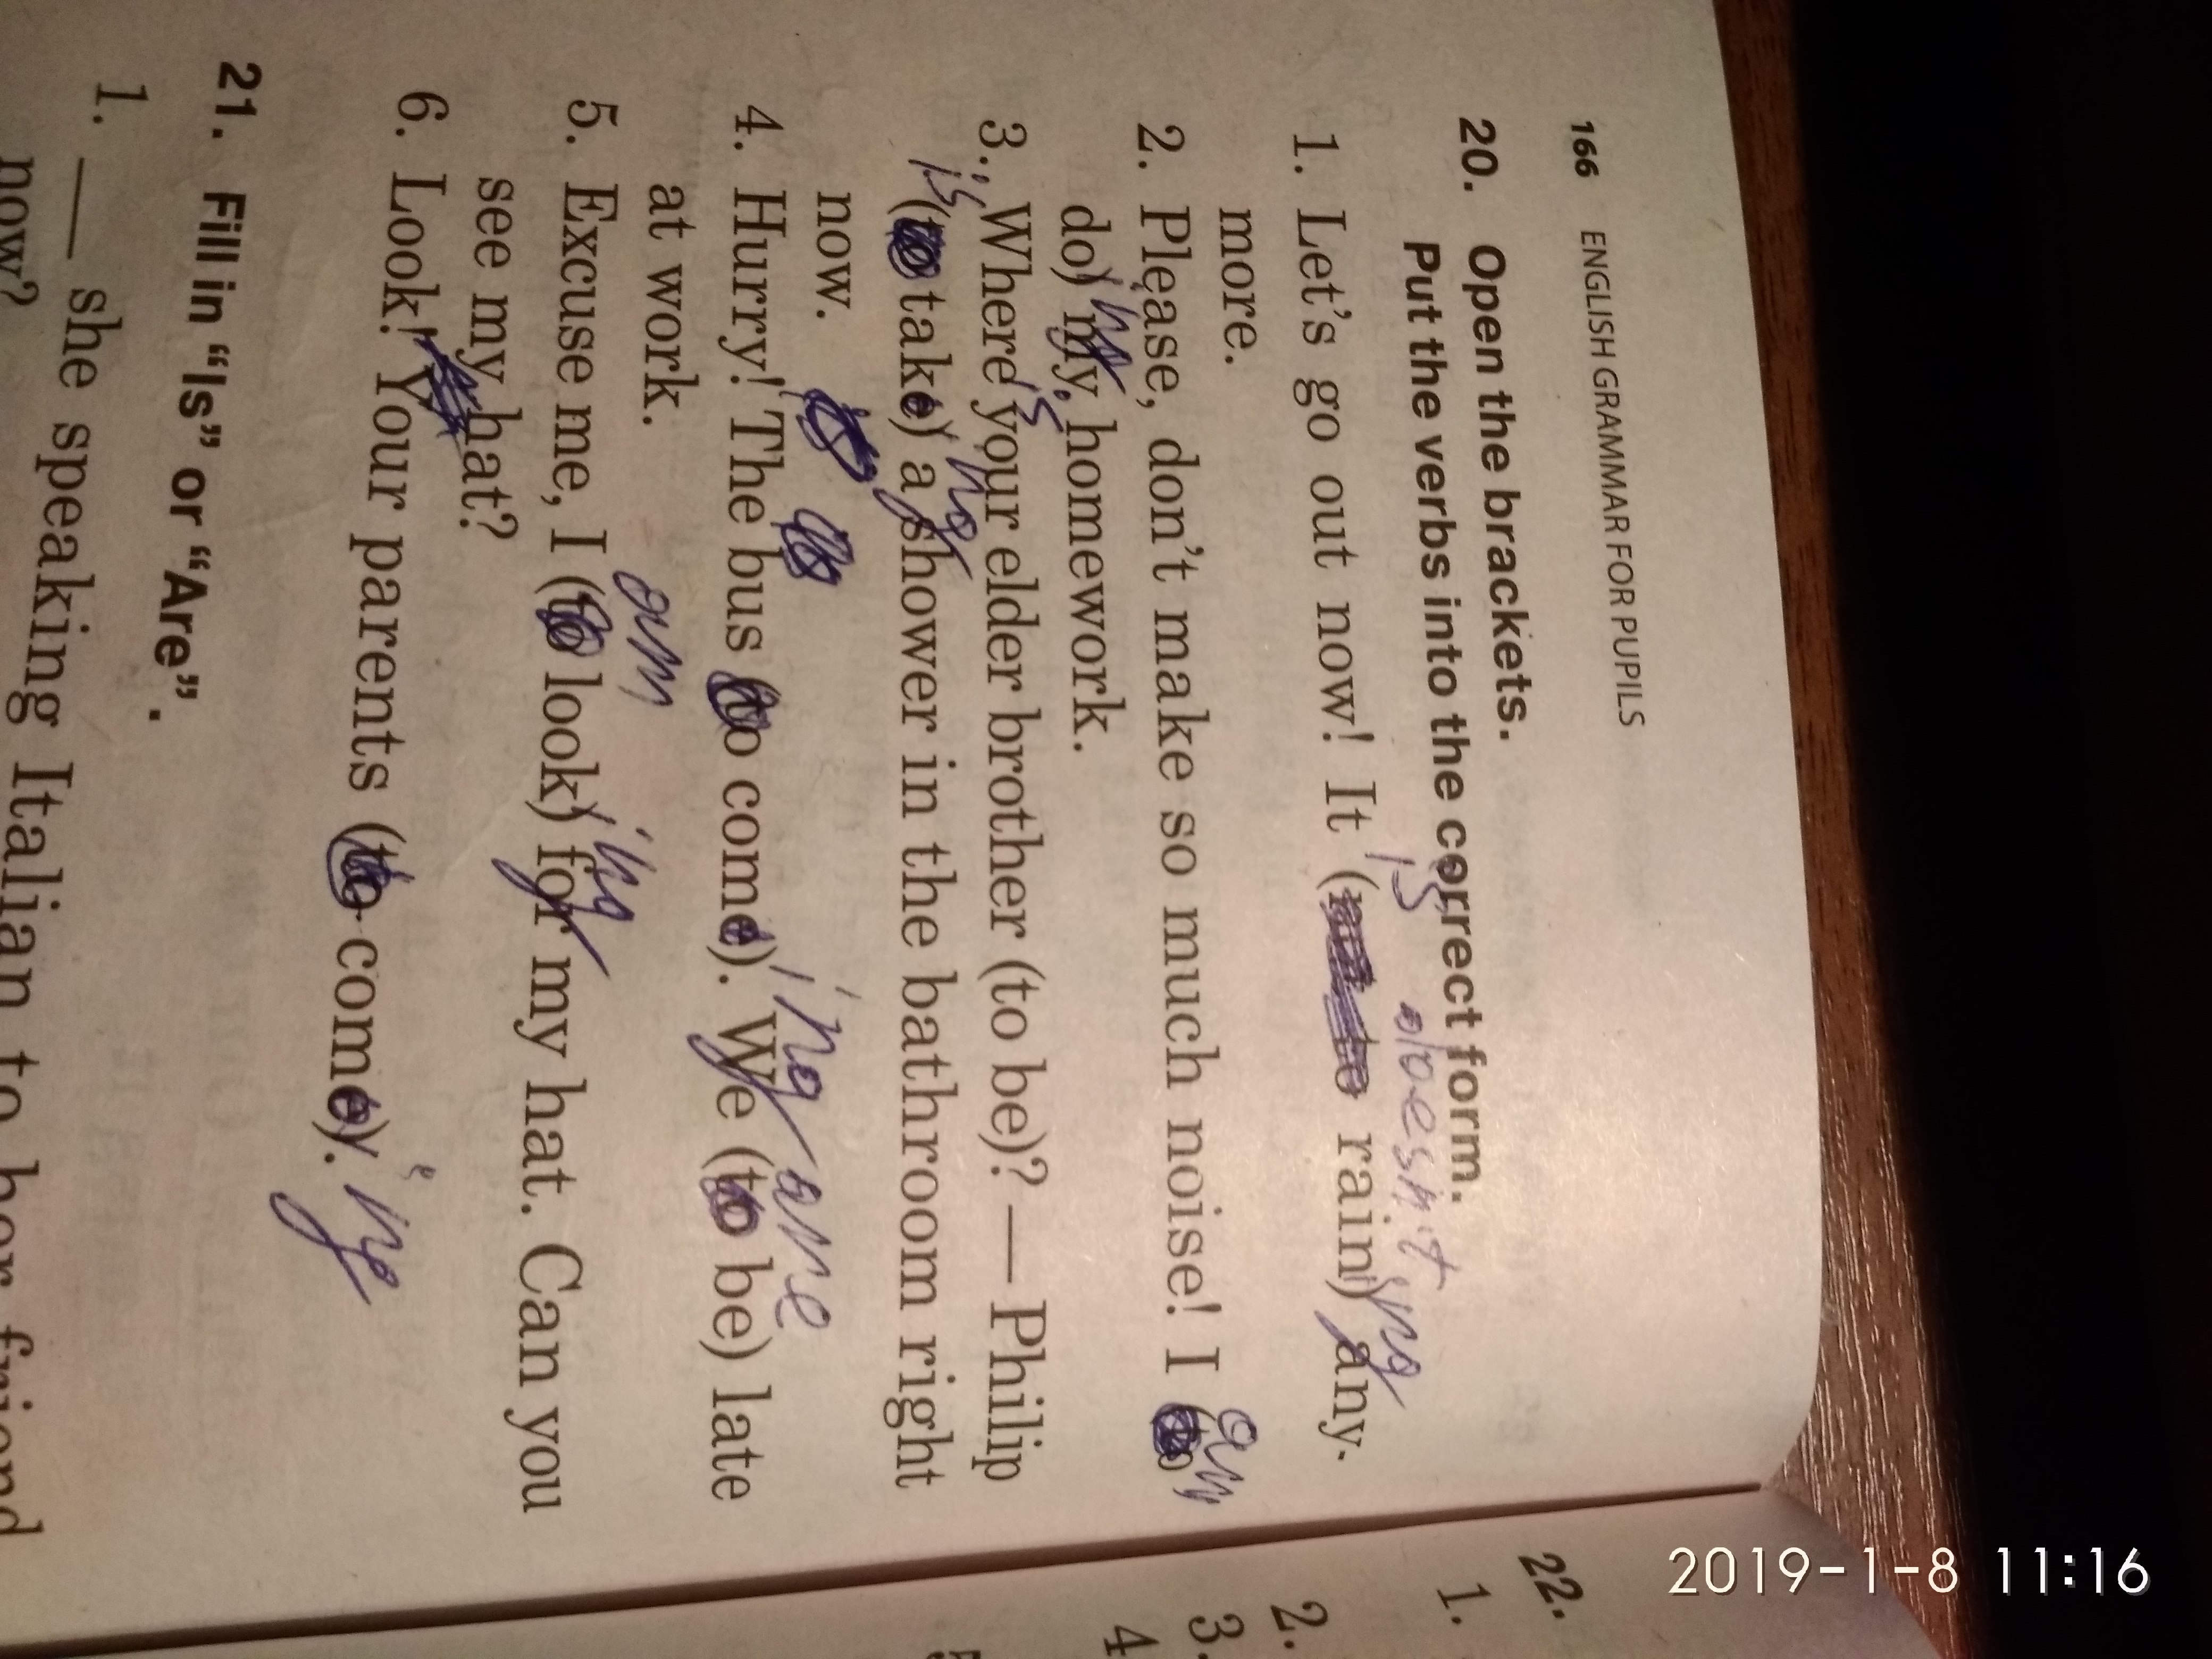 166 ENGLISH GRAMMAR FOR PUPILS
20. Open the brackets.
Put the verbs into the correct form.
is doesn't ing
1. Let's go out now! It ( rain) any
more.
am
2. Please, don't make so much noise! I (to
do) my homework.
ing
's
3. Where your elder brother (to be)? — Philip
is ing
(to take) a shower in the bathroom right
now.
ing are
4. Hurry! The bus (to come). We (to be) late
at work.
am ing
5. Excuse me, I (to look) for my hat. Can you
see my hat?
6. Look! Your parents (to come).
ing
21. Fill in “Is” or “Are”.
1. ___ she speaking Italian to her friend
now?
22.
1.
2.
3.
4
2019-1-8 11:16